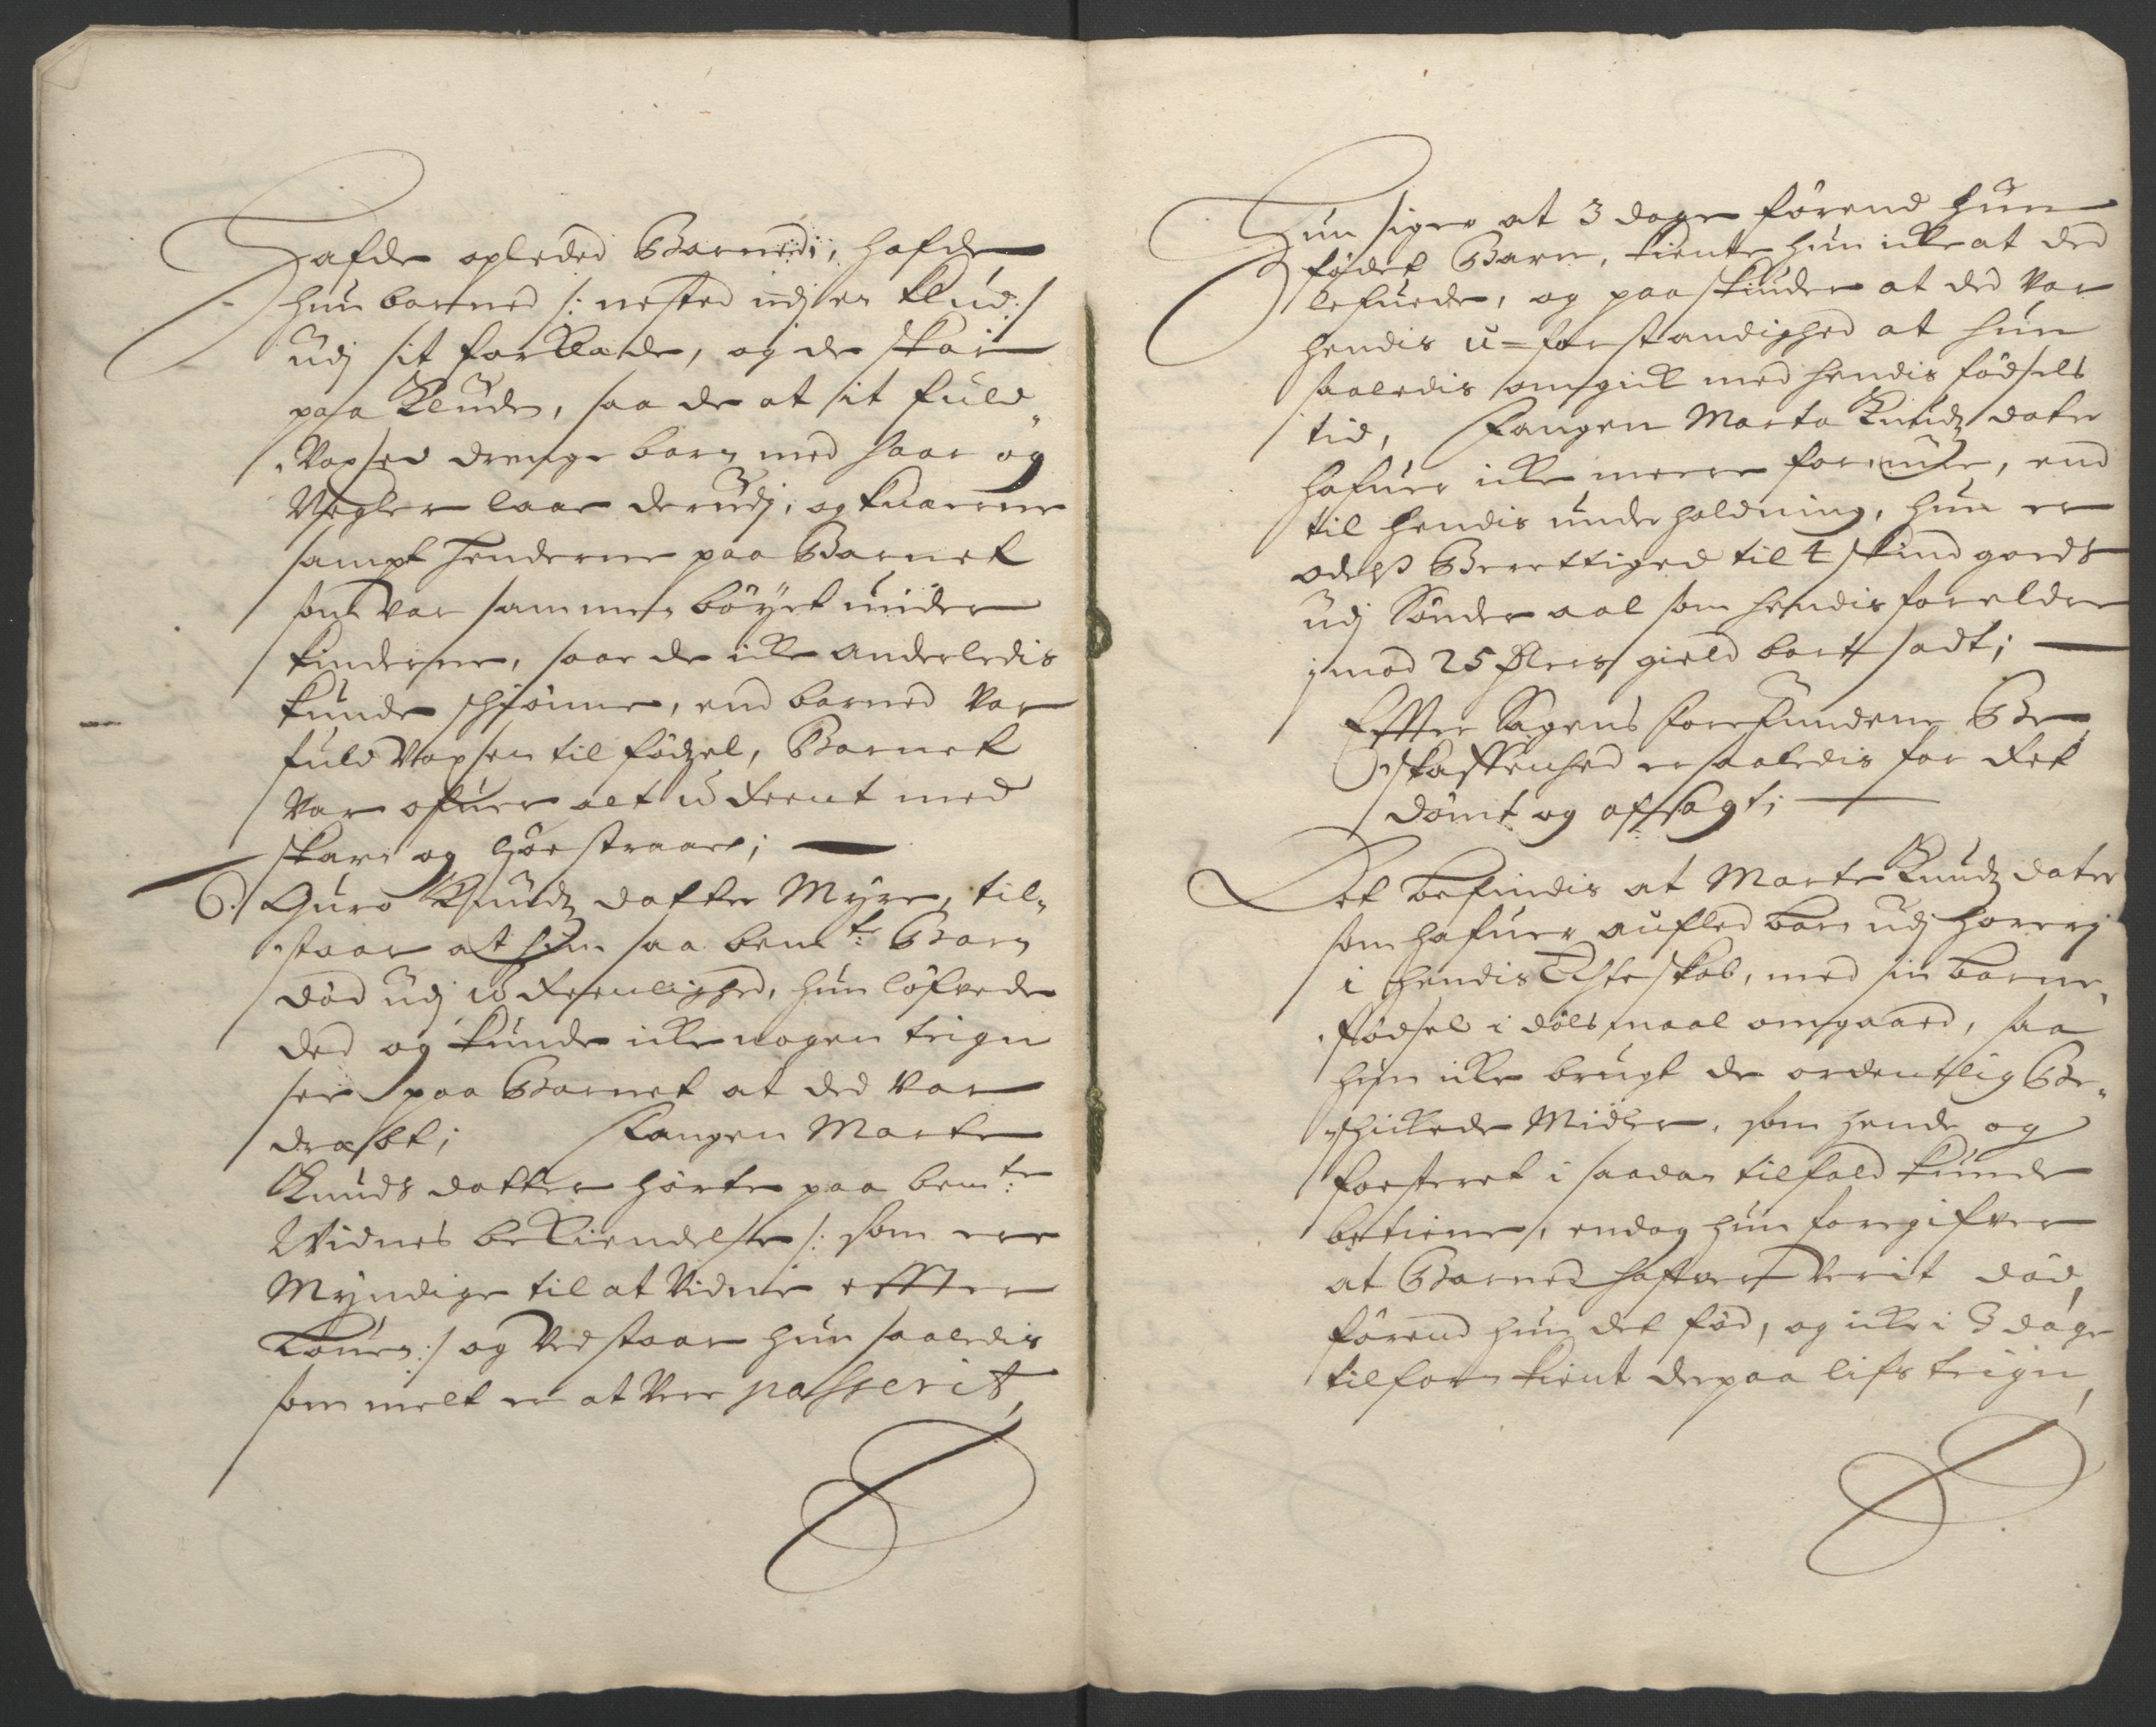 Hafde opleded Barned; hafde
hun barned /: nested udj en klud :/
udj sit forklæde, og de skar
paa kluden, saa de at it fuld
voxsed drenge barn med haar og
Negler laae derudj, og knærne
sampt henderne paa Barnet
som var sammen böyet under
kinderne, saae de icke anderledis
kunde schiönne, end barned var
fuld voxsen til födzel, Barnet
var ofuer alt u reent med
skarn og höe straaer;
6./ Guro Knudz datter Myre, til„
„staar at hun saa bemte: Barn
död udj u reenlighed, hun löfvede
ded og kunde icke nogen teign
see paa Barnet at ded var
dræbt; Fangen Marte
Knuds datter hörte paa bemte:
Vidnes bekiendelse /: som ere
Myndige til at Vidne effter
Louen :/ og Vedstaar hun saaledis
som melt er at være passerit,
Hun siger at 3 dage förend hun
födet Barn, kiente hun icke at ded
lefuede, og paaskinder at ded var
hendis u=forstandighed at hun
saaledis omgick med hendis födsels
tid, Fangen Marta Knudz dater
hafuer icke meere formue, end
til hendis underholdning, hun er
odelss Berettiged til 4 skind goeds
udj Sönder aal som hendis foreldre
imod 25 Dlers gield bortsadt;
Effter Sagens forefundene Be„
„skaffenhed er saaledis for Ret
dömt og afsagt;
Det befindis at Marte Knudz dater
som hafuer aufled barn udj horerj
i hendis Echteskab, med sin barne„
„födsel i dölsmaal omgaaed, saa
hun icke brugt de ordentlig Be„
„schickede Midler, som hende og
fosteret i saadan tilfald kunde
betiene, endog hun foregifver
at Barned hafver verit död,
förend hun det föd, og icke i 3 dage
tilforn kient derpaa lifs teign,